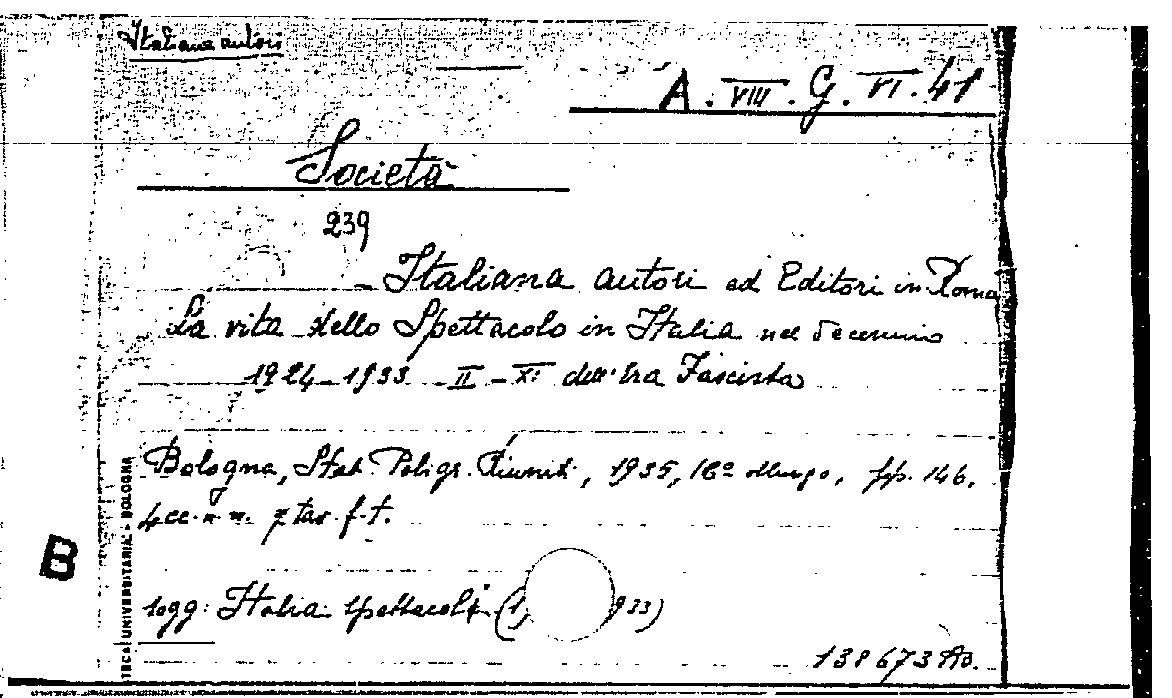 Italiana autori
A. VIII. G. VI. 41
Società
239
Italiana autori ed Editori in Roma
La vita dello Spettacolo in Italia nel decennio
1924-1933 II-XI dell'Era Fascista
Bologna, Stab. Poligr. Riuniti, 1935, 16º obungo, pp. 146,
4 cc. n. n. 7 tav. f. t.
sogg: Italia: spettacoli (1 933)
138673 AB.
B
TECA UNIVERSITARIA - BOLOGNA